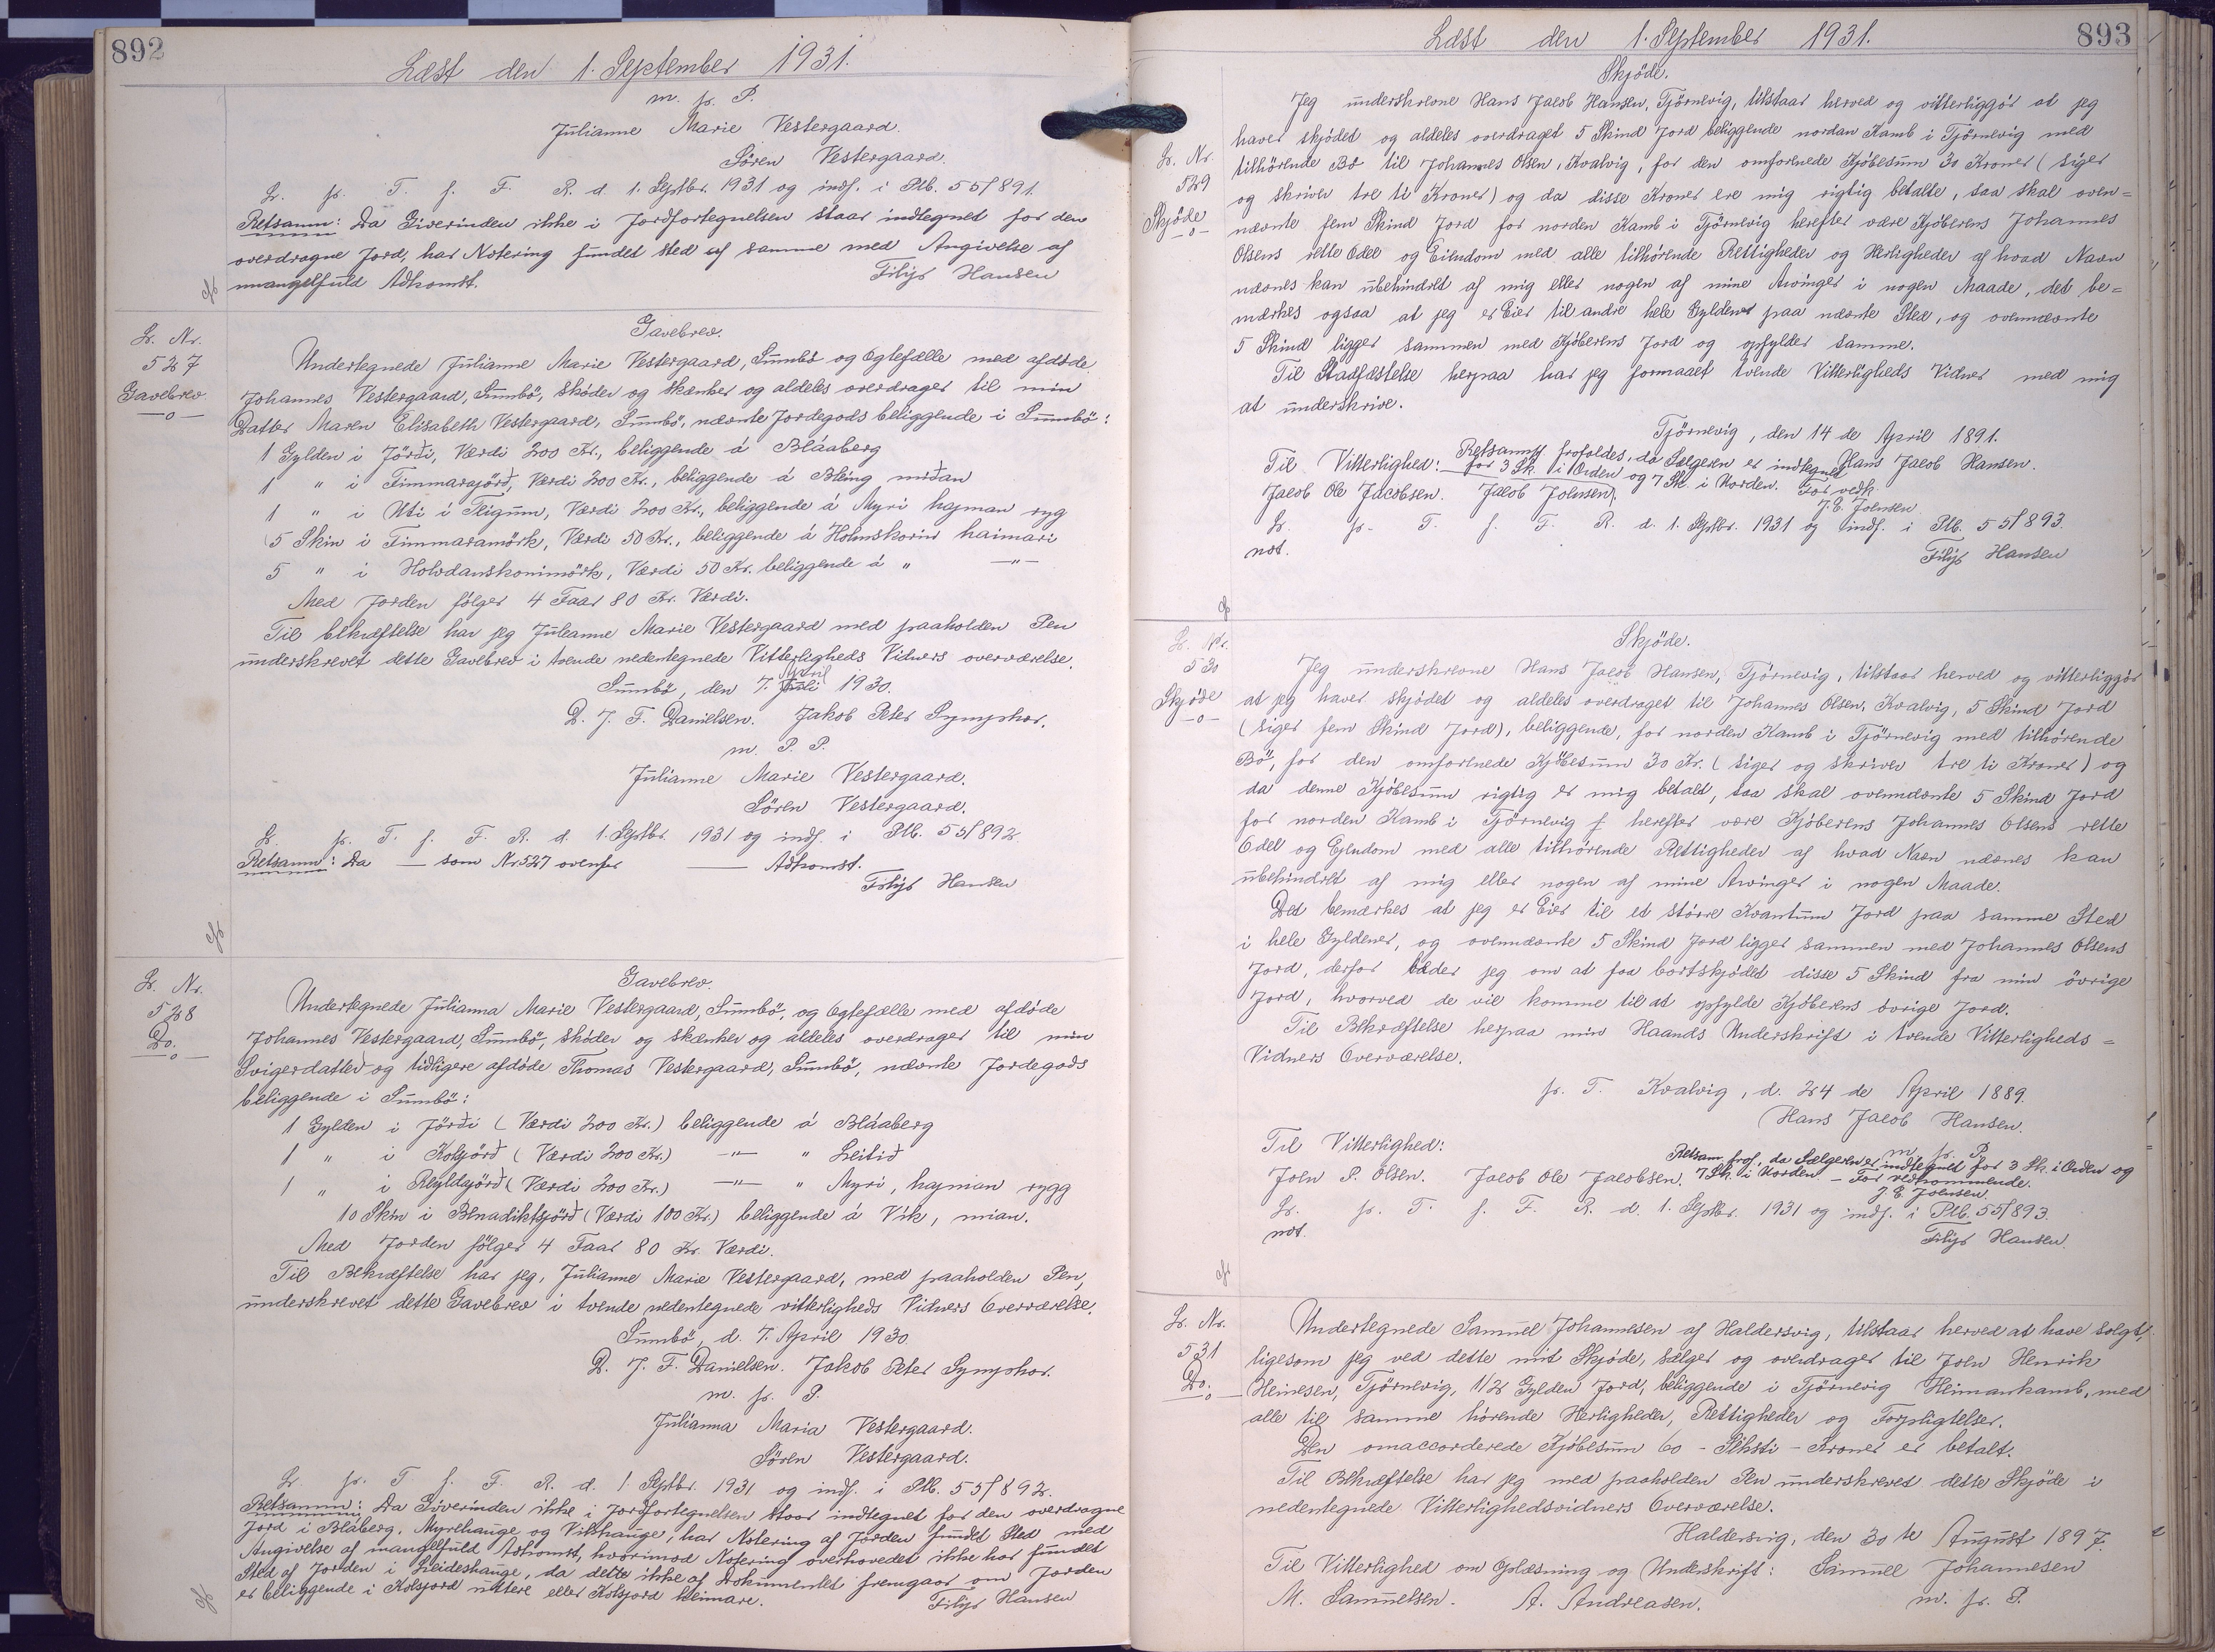 892
Læst den 1. September 1931.
m. p. P.
Julianne Marie Vestergaard.
Sören Vestergaard.
L. p. T. f. F. R. d. 1. Septbr. 1931 og indf. i Ptb. 55f891.
Retsanm: Da Giverinden ikke i Jordfortegnelsen staar indtegnet for den
overdragne Jord, har Notering fundet Sted af samme med Angivelse af
mangelfuld Adkomst.
Filip Hansen
L. Nr.
527
Gavebrev
—o—
Gavebrev.
Undertegnede Julianne Marie Vestergaard, Sumbö og Ogtefælle med afdöde
Johannes Vestergaard, Sumbö, sköder og skænker og aldeles overdrager til min
Datter Maren Elisabeth Vestergaard, Sumbö, nævnte Jordegods beliggende i Sumbö:
1 Gylden i Jörði, Værdi 200 Kr., beliggende á Bláaberg
1 " i Timmarajörð, Værdi 200 Kr., beliggende á Bling miðan
1 " i Uti i Teigum, Værdi 200 Kr., beliggende á Myri hajman ryg
5 Skin i Timmaramörk, Værdi 50 Kr., beliggende á Holmskorin haimari
5 " i Holvdanskonimörk, Værdi 50 Kr. beliggende á " —"—
Med Jorden fölger 4 Faar 80 Kr. Værdi.
Til bekræftelse har jeg Juleanne Marie Vestergaard med paaholden Pen
underskrevet dette Gavebrev i tvende nedentegnede Vitterligheds Vidners overværelse.
Sumbö, den 7. Juli April 1930.
D. J. F. Danielsen. Jakob Peter Symphor.
m. P. P.
Julianne Marie Vestergaard.
Sören Vestergaard.
L. p. T. f. F. R. d. 1. Septbr. 1931 og indf. i Ptb. 55f892
Retsanm: Da — som Nr 527 ovenfor — Adkomst.
Filip Hansen
L. Nr.
528
Do.
—o—
Gavebrev.
Undertegnede Julianna Marie Vestergaard, Sumbö, og Ogtefælle med afdöde
Johannes Vestergaard, Sumbö, sköder og skænker og aldeles overdrager til min
Svigerdatter og tidligere afdöde Thomas Vestergaard, Sumbö, nævnte Jordegods
beliggende i Sumbö:
1 Gylden i Jörði (Værdi 200 Kr.) beliggende á Bláaberg
1 " i Kolsjörð (Værdi 200 Kr.) —"— " Leitið
1 " i (Værdi 200 Kr.) —"— " Myri, hajman rygg
10 Skin i Benadiktsjörð (Værdi 100 Kr.) beliggende á Vík, mian.
Med Jorden fölger 4 Faar 80 Kr. Værdi.
Til Bekræftelse har jeg, Julianne Marie Vestergaard, med paaholden Pen,
underskrevet dette Gavebrev i tvende nedentegnede vitterligheds Vidners Overværelse.
Sumbö, d. 7. April 1930
D. J. F. Danielsen. Jakob Peter Symphor.
m. p. P.
Julianna Maria Vestergaard.
Sören Vestergaard.
L. p. T. f. F. R. d. 1. Septbr. 1931 og indf. i Ptb. 55f892.
Retsanm: Da Giverinden ikke i Jordfortegnelsen staar indtegnet for den overdragne
Jord i Bláberg, Myrehauge og Vikhauge, har Notering af Jorden fundet Sted med
Angivelse af mangelfuld Adkomst, hvorimod Notering overhovedet ikke har fundet
Sted af Jorden i Leideshauge, da dette ikke af Dokumentet fremgaar om Jorden
er beliggende i Kolsjord uttere eller Kolsjord heimare.
Filip Hansen
893
Læst den 1. September 1931.
Skjöde.
L. Nr.
529
Skjöde
—o—
Jeg underskrevne Hans Jacob Hansen, Tjörnevig, tilstaar herved og vitterliggör at jeg
haver skjödet og aldeles overdraget 5 Skind Jord beliggende nordan Kamb i Tjörnevig med
tilhörende Bö til Johannes Olsen, Kvalvig, for den omforenede Kjöbesum 30 Kroner (siger
og skriver tre ti Kroner) og da disse Kroner ere mig rigtig betalte, saa skal oven=
nævnte fem Skind Jord for norden Kamb i Tjörnevig herefter være Kjöberens Johannes
Olsens rette Odel og Eiendom med alle tilhörende Rettigheder og Herligheder af hvad Navn
nævnes kan ubehindret af mig eller nogen af mine Arvinger i nogen Maade, det be=
mærkes ogsaa at jeg er Eier til andre hele Gyldener paa nævnte Sted, og ovennævnte
5 Skind ligger sammen med Kjöberens Jord og opfylder samme.
Til Stadfæstelse herpaa har jeg formaaet tvende Vitterligheds Vidner med mig
at underskrive.
Tjörnevig, den 14 de April 1891.
Til Vitterlighed: Retsanm frafoldes, da Sælgeren er indtegnet Hans Jacob Hansen.
for 3 Sk. i Orden og 7 Sk. i Norden. For vedk.
Jacob Ole Jacobsen. Jacob Joensen. J. E. Joensen
L. p. T. f. F. R. d. 1. Septbr. 1931 og indf. i Ptb. 55f893.
not. Filip Hansen
L. Nr.
530
Skjöde
—o—
Skjöde.
Jeg underskrevne Hans Jacob Hansen, Tjörnevig, tilstaar herved og vitterliggör
at jeg haver skjödet og aldeles overdraget til Johannes Olsen, Kvalvig, 5 Skind Jord
(siger fem Skind Jord), beliggende, for norden Kamb i Tjörnevig med tilhörende
Bö, for den omforenede Kjöbesum 30 Kr. (siger og skriver tre ti Kroner) og
da denne Kjöbesum rigtig er mig betalt, saa skal ovennævnte 5 Skind Jord
for norden Kamb i Tjörnevig herefter være Kjöberens Johannes Olsens rette
Odel og Ejendom med alle tilhörende Rettigheder af hvad Navn nævnes kan
ubehindret af mig eller nogen af mine Arvinger i nogen Maade.
Det bemærkes at jeg er Eier til et större Kvantum Jord paa samme Sted
i hele Gyldener, og ovennævnte 5 Skind Jord ligger sammen med Johannes Olsens
Jord, derfor beder jeg om at faa bortskjödet disse 5 Skind fra min övrige
Jord, hvorved de vil komme til at opfylde Kjöberens övrige Jord.
Til Bekræftelse herpaa min Haands Underskrift i tvende Vitterligheds=
Vidners Overværelse.
p. T. Kvalvig, d. 24 de April 1889.
Hans Jacob Hansen.
Til Vitterlighed: m. p. P.
Retsanm. frof., da Sælgeren er indtegnet for 3 Sk. i Orden og
Joen P. Olsen. Jacob Ole Jacobsen. 7 Sk. i Norden. — For vedkommende.
J. E. Joensen.
L. p. T. f. F. R. d. 1. Septbr. 1931 og indf. i Ptb. 55f893.
not. Filip Hansen.
L. Nr.
531
Do.
—o—
Undertegnede Samuel Johannesen af Haldersvig, tilstaar herved at have solgt,
ligesom jeg ved dette mit Skjöde, sælger og overdrager til Joen Henrik
Heinesen, Tjörnevig, 1/2 Gylden Jord, beliggende i Tjörnevig Heimankamb, med
alle til samme hörende Herligheder, Rettigheder og Forpligtelser.
Den omaccorderede Kjöbesum 60 - Seksti - Kroner er betalt.
Til Bekræftelse har jeg med paaholden Pen underskrevet dette Skjöde i
nedentegnede Vitterlighedsvidners Overværelse.
Haldersvig, den 30 te August 1897.
Til Vitterlighed om Oplæsning og Underskrift: Samuel Johannesen
M. Samuelsen. A. Andreasen. m. p. P.